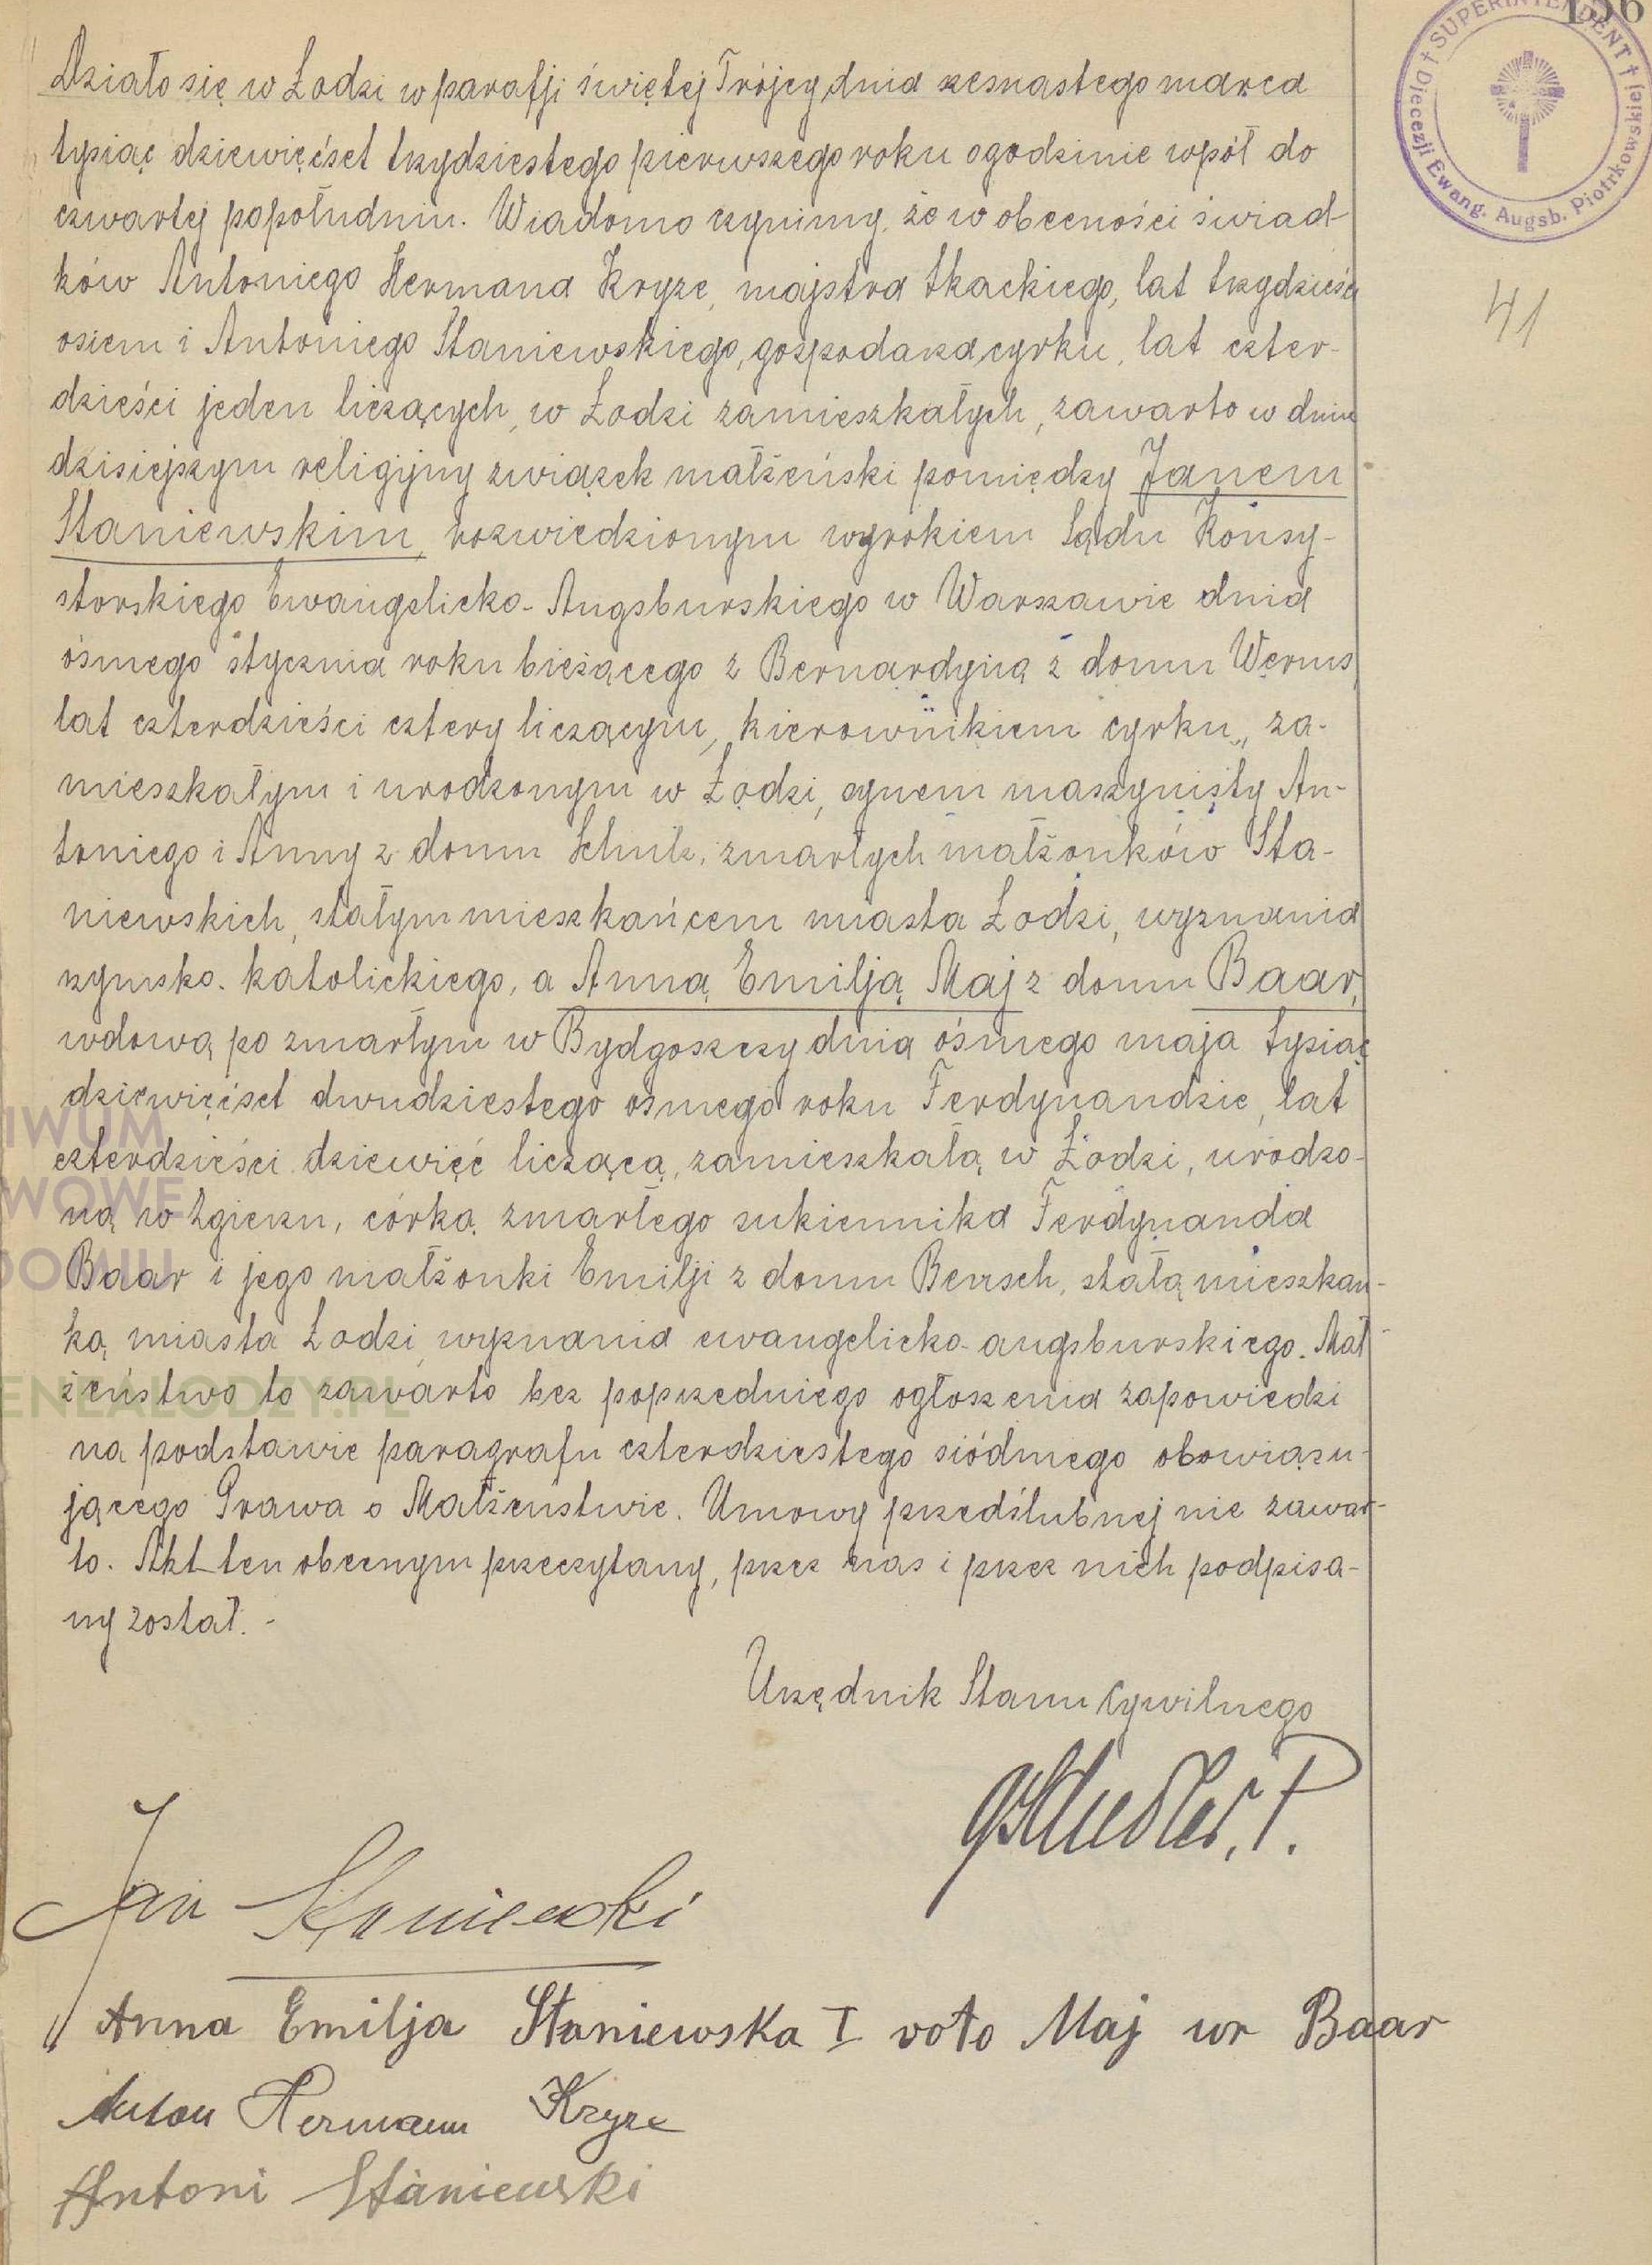 156
† SUPERINTENDENT † Djecezji Ewang. Augsb. Piotrkowskiej
41
Działo się w Łodzi w parafji świętej Trójcy dnia szesnastego marca
tysiąc dziewięćset trzydziestego pierwszego roku o godzinie wpół do
czwartej popołudniu. Wiadomo czynimy, że w obecności świad-
ków Antoniego Hermana Kryze, majstra tkackiego, lat trzydzieści
osiem i Antoniego Staniewskiego, gospodarza cyrku, lat czter-
dzieści jeden liczących, w Łodzi zamieszkałych, zawarto w dniu
dzisiejszym religijny związek małżeński pomiędzy Janem
Staniewskim, rozwiedzionym wyrokiem Sądu Konsy-
storskiego Ewangelicko-Augsburskiego w Warszawie dnia
ósmego stycznia roku bieżącego z Bernardyną z domu Werms,
lat czterdzieści cztery liczącym, kierownikiem cyrku, za-
mieszkałym i urodzonym w Łodzi, synem maszynisty An-
toniego i Anny z domu Schulz, zmarłych małżonków Sta-
niewskich, stałym mieszkańcem miasta Łodzi, wyznania
rzymsko-katolickiego, a Anną Emilją Maj z domu Baar,
wdową po zmarłym w Bydgoszczy dnia ósmego maja tysiąc
dziewięćset dwudziestego ósmego roku Ferdynandzie, lat
czterdzieści dziewięć liczącą, zamieszkałą w Łodzi, urodzo-
ną w Zgierzu, córką zmarłego sukiennika Ferdynanda
Baar i jego małżonki Emilji z domu Bersch, stałą mieszkan-
ką miasta Łodzi, wyznania ewangelicko-augsburskiego. Mał-
żeństwo to zawarto bez poprzedniego ogłoszenia zapowiedzi
na podstawie paragrafu czterdziestego siódmego obowiązu-
jącego Prawa o Małżeństwie. Umowy przedślubnej nie zawar-
to. Akt ten obecnym przeczytany, przez nas i przez nich podpisa-
ny został. -
Urzędnik Stanu Cywilnego
Jan Staniewski
Anna Emilja Staniewska I voto Maj ur Baar
Anton Hermann Kryze
Antoni Staniewski
IWUM
WOWE
DOMIU
ENEALODZY.PL